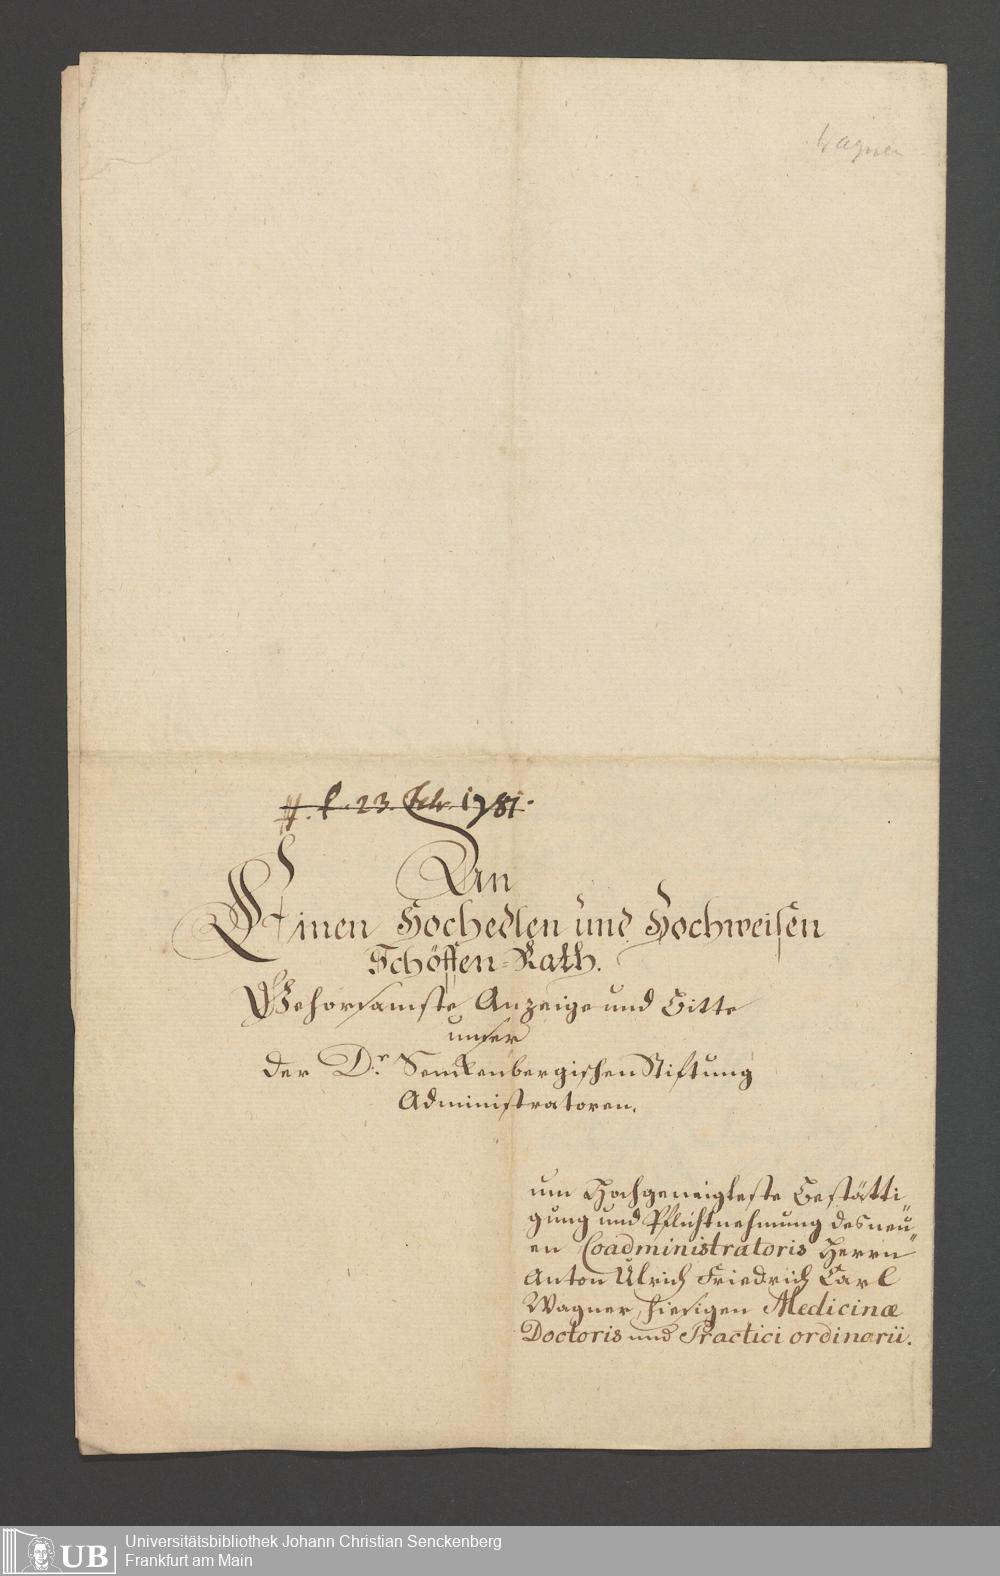 Wagner
23. Febr. 1781.
An
Einen Hochedlen und Hochweisen
Schöffen-Rath.
Gehorsamste Anzeige und Bitte
unser
der Dr. Senckenbergischen Stiftung
Administratoren.
um Hochgeneigteste Bestätti
gung und Pflichtnehmung des neu„
en Coadministratoris Herrn
Anton Ulrich Friedrich Carl
Wagner, hiesigen Medicinæ
Doctoris und Practici ordinarii.
UB
Universitätsbibliothek Johann Christian Senckenberg
Frankfurt am Main